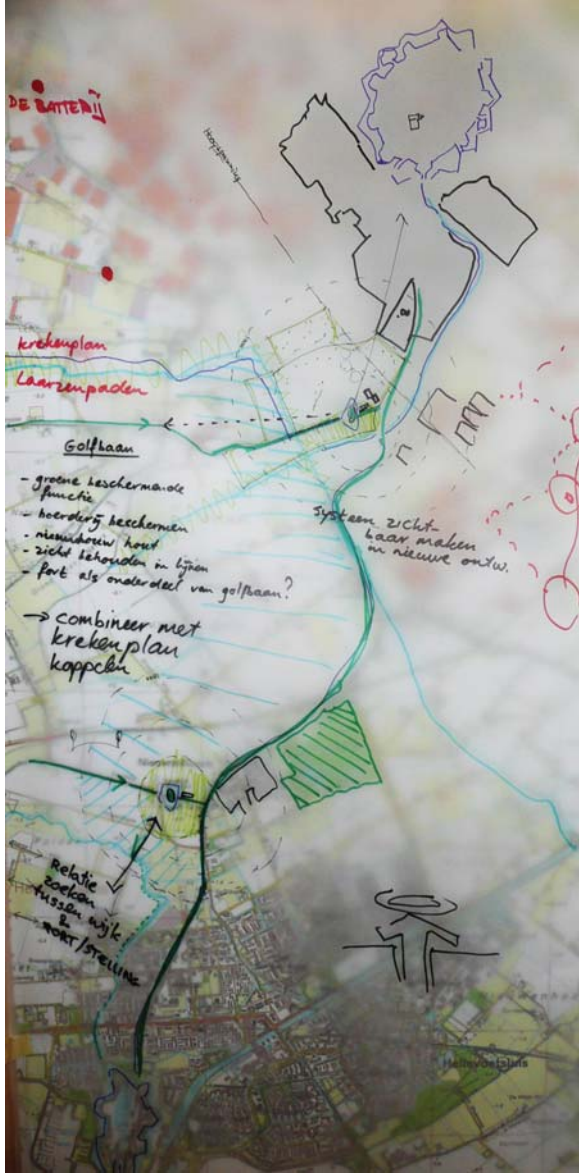 DE BATTERIJ
krekenplan
Laarzenpaden
Golfbaan
- groene beschermende
functie
- boerderij beschermen
- nieuwbouw hout
- zicht behouden in lijnen
- fort als onderdeel van golfbaan?
→ combineer met
krekenplan
koppelen
systeem zicht-
baar maken
in nieuwe ontw.
Relatie
zoeken
tussen wijk
&
FORT/STELLING
Hellevoetsluis